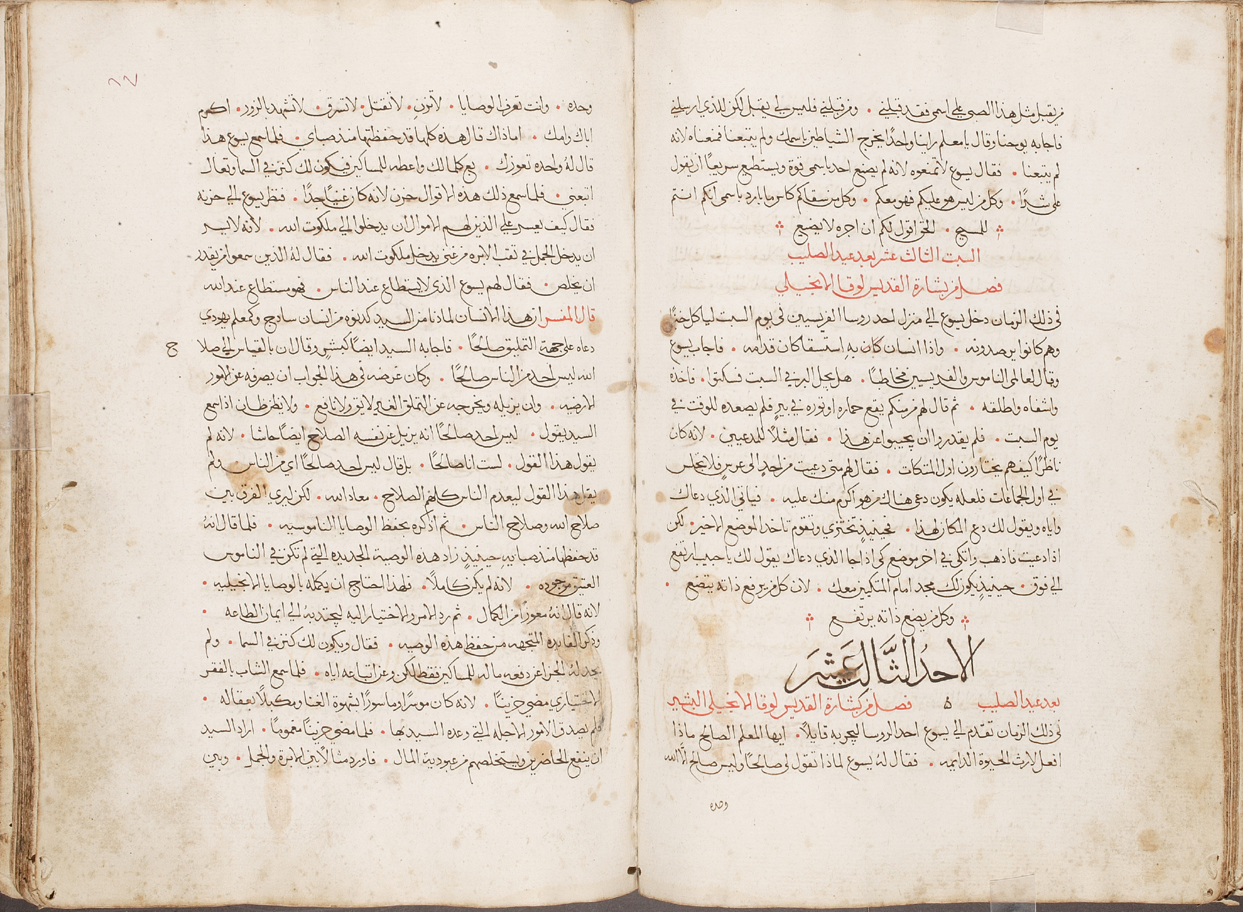 من يقبل مثل هذا الصبي على اسمي فقد قبلني ۰ ومن قبلني فليس لي يقبل لكن للذي ارسلني
فاجابه يوحنا وقال يا معلم راينا واحدًا يخرج الشياطين باسمك ولم يتبعنا فمنعناه لانه
لم يتبعنا ۰ فقال يسوع لا تمنعوه لانه لم يصنع احد باسمي قوة ويستطيع سريعًا ان يقول
على شرًا ۰ وكل من ليس هو عليكم فهو معكم ۰ وكل من سقاكم كاس ما بارد باسمي انكم انتم
للمسيح ۰ الحق اقول لكم ان اجره لا يضيع
السبت الثالث عشر بعد عيد الصليب
فصل من بشارة القديس لوقا الانجيلي
في ذلك الزمان دخل يسوع الى منزل احد روسا الفريسيين في يوم السبت لياكل خبزًا
وهم كانوا يرصدونه ۰ واذا انسان كان به استسقا كان قدامه ۰ فاجاب يسوع
وقال لعالمي الناموس والفريسيين مخاطبًا ۰ هل يحل البرئ في السبت فسكتوا ۰ فاخذه
واشفاه واطلقه ۰ ثم قال لهم من منكم يقع حماره او ثوره في بير فلم يصعده للوقت في
يوم السبت ۰ فلم يقدروا ان يجيبوا عن هذا ۰ فقال مثلاً للمدعيين ۰ لانه كان
ناظرًا كيف هم يختارون اول المتكات ۰ فقال لهم متى دعيت من احد الى عرس فلا تجلس
في اول الجماعات فلعله يكون دعي هناك من هو اكرم منك عليه ۰ فياتي الذي دعاك
واياه ويقول لك دع المكان لهذا ۰ فحينيذٍ تختزي وتقوم تاخذ الموضع الاخير ۰ لكن
اذا دعيت فاذهب واتكي في اخر موضع كي اذا جا الذي دعاك يقول لك يا حبيب ارتفع
الى فوق ۰ حينيذٍ يكون لك مجد امام المتكيين معك ۰ لان كل من يرفع ذاته يتضع ۰
وكل من يضع ذاته يرتفع
الاحد الثالث عشر
بعد عيد الصليب ۵ فصل من بشارة القديس لوقا الانجيلي البشير
في ذلك الزمان تقدم الى يسوع احد الروسا ليجربه قايلاً ۰ ايها المعلم الصالح ماذا
افعل لارث الحيوة الدايمه ۰ فقال له يسوع لماذا تقول لي صالحًا وليس صالح الّا الله
وحده
٩٧
وحده ۰ وانت تعرف الوصايا ۰ لا تزنِ ۰ لا تقتل ۰ لا تسرق ۰ لا تشهد بالزور ۰ اكرم
اباك وامك ۰ اما ذاك قال هذه كلها قد حفظتها منذ صباي ۰ فلما سمع يسوع هذا
قال له واحده تعوزك ۰ بع كلما لك واعطه للمساكين فيكون لك كنز في السما وتعال
اتبعني ۰ فلما سمع ذلك هذه الاقوال حزن لانه كان غنيًا جدًا ۰ فنظر يسوع الى حزنه
فقال كيف يعسر على الذين لهم الاموال ان يدخلوا الى ملكوت الله ۰ لانه لايسر
ان يدخل الجمل في ثقب الابره من غني يدخل ملكوت الله ۰ فقال له الذين سمعوا من يقدر
ان يخلص ۰ فقال لهم يسوع الذي لا يستطاع عند الناس ۰ فهو مستطاع عند الله
قال المفسر ان هذا الانسان لما ذنا من السيد كدنوه من انسان ساذج وكمعلم يهودي
دعاه على جهة التملق صالحًا ۰ فاجابه السيد ايضًا كبشر وقال ان بالقياس الى صلاح
الله ليس احد من الناس صالحًا ۰ وكان غرضه في هذا الجواب ان يصرفه عن الامور
الارضيه ۰ وان يزيله ويخرجه عن التملق الغير لايق ولا نافع ۰ ولا يظن ظان اذا سمع
السيد يقول ۰ ليس احد صالحًا انه يزيل عن نفسه الصلاح ايضًا حاشا ۰ لانه لم
يقول هذا القول ۰ لست انا صالحًا ۰ بل قال ليس احد صالحًا اي من الناس ولم
يقل هذا القول ليعدم الناس كلهم الصلاح ۰ معاذ الله ۰ لكن ليري الفرق بين
صلاح الله وصلاح الناس ۰ ثم اذكره بحفظ الوصايا الناموسيه ۰ فلما قال انهُ
قد حفظها منذ صبايه حينيذٍ زاد هذه الوصية الجديده التي لم تكن في الناموس
العتيق موجوده ۰ لانه لم يكن كاملاً ۰ فلهذا احتاج ان يكمله بالوصايا الانجيليه ۰
لانه قال انه معوزًا من الكمال ۰ ثم رد الامر والاختيار اليه ليجتذبه الى ايمان الطاعه ۰
وذكر الفايده المتجهه من حفظ هذه الوصيه ۰ فقال ويكون لك كنز في السما ۰ ولم
يحد له الجزا عن دفعه ماله للمساكين فقط لكن وعن اتباعه اياه ۰ فلما سمع الشاب بالفقر
الاختياري مضى حزينًا ۰ لانه كان موسرًا وماسورًا بشهوة الغنا ومكبلاً بعقاله ۰
فلم يصدق الامور الاجله التي وعده السيد بها ۰ فلما مضى حزينًا مغمومًا ۰ اراد السيد
ان ينفع الحاضرين ويستخلصهم من عبودية المال ۰ فاورد مثالاً بين الابرة والجمل ۰ وبين
ح